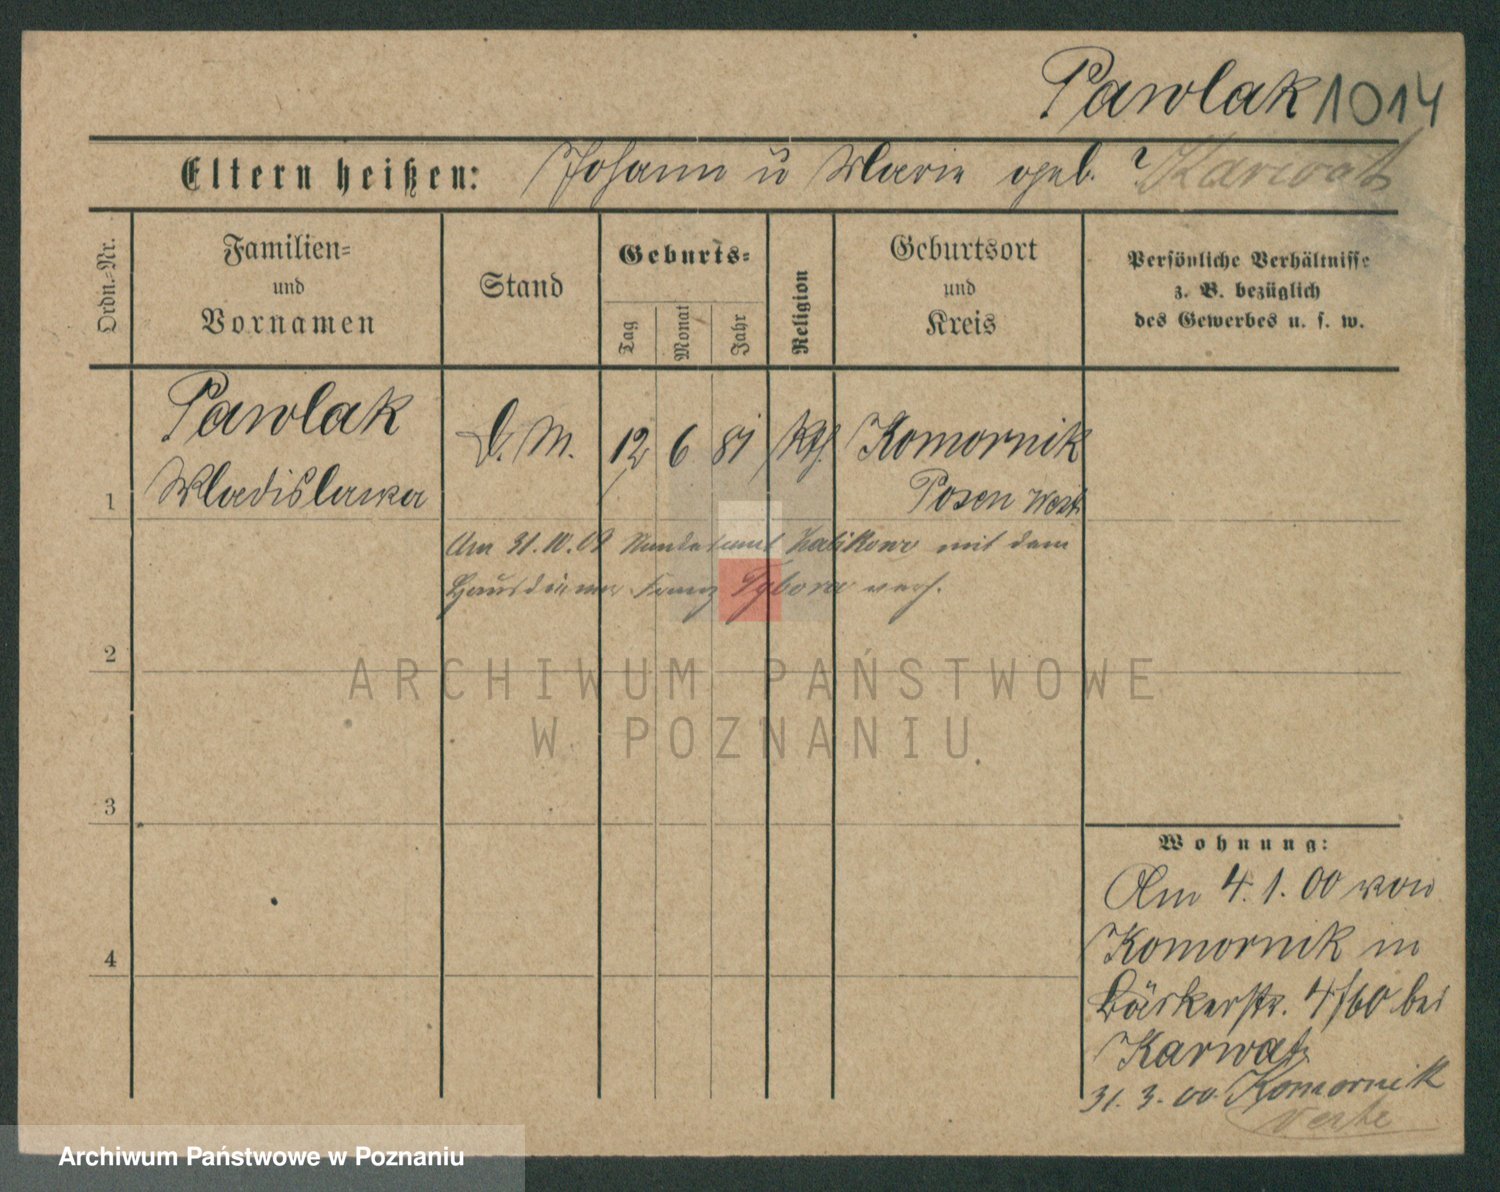 Pawlak 1014
Eltern heißen: Johann u Marie geb. ? Karwat
Ordn.-Nr.
Familien-
und
Vornamen
Stand
Geburts-
Tag
Monat
Jahr
Religion
Geburtsort
und
Kreis
Persönliche Verhältnisse
z. B. bezüglich
des Gewerbes u. s. w.
Pawlak
Wladislawa
1
D. M.
12 6 81
Kth.
Komornik
Posen West
Am 31.10.09 Standesamt mit dem
Hausdiener Franz Tybora verh.
2
3
4
ARCHIWUM PAŃSTWOWE
W POZNANIU
Wohnung:
Am 4.1.00 von
Komornik in
Bäckerstr. 4/60 bei
Karwat
31.3.00 Komornik
verte
Archiwum Państwowe w Poznaniu